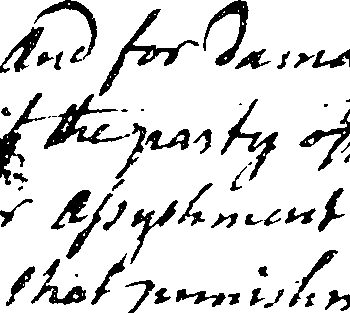 and for dama
the party
r Assythment
that punishm